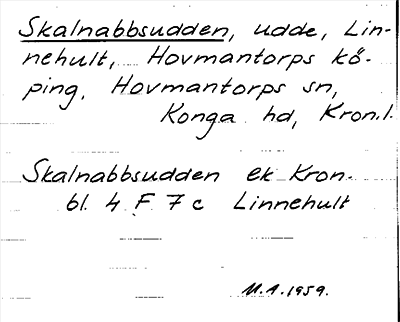 Skalnabbsudden, udde, Lin-
nehult, Hovmantorps kö-
ping, Hovmantorps sn,
Konga hd, Kron.l.
Skalnabbsudden ek Kron.
bl. 4 F 7 c Linnehult
M.A. 1959.